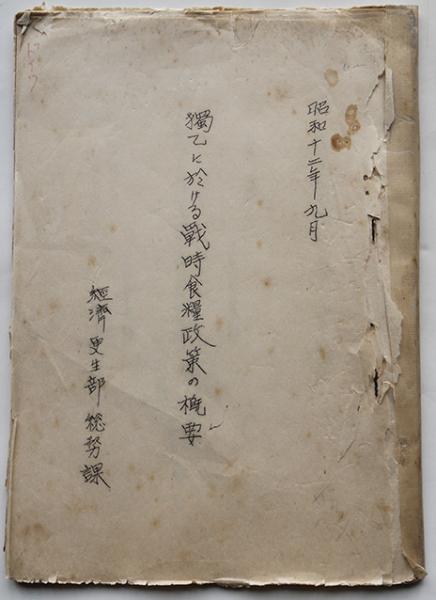 昭和十二年九月
獨乙に於ける戰時食糧政策の概要
經濟更生部總務課